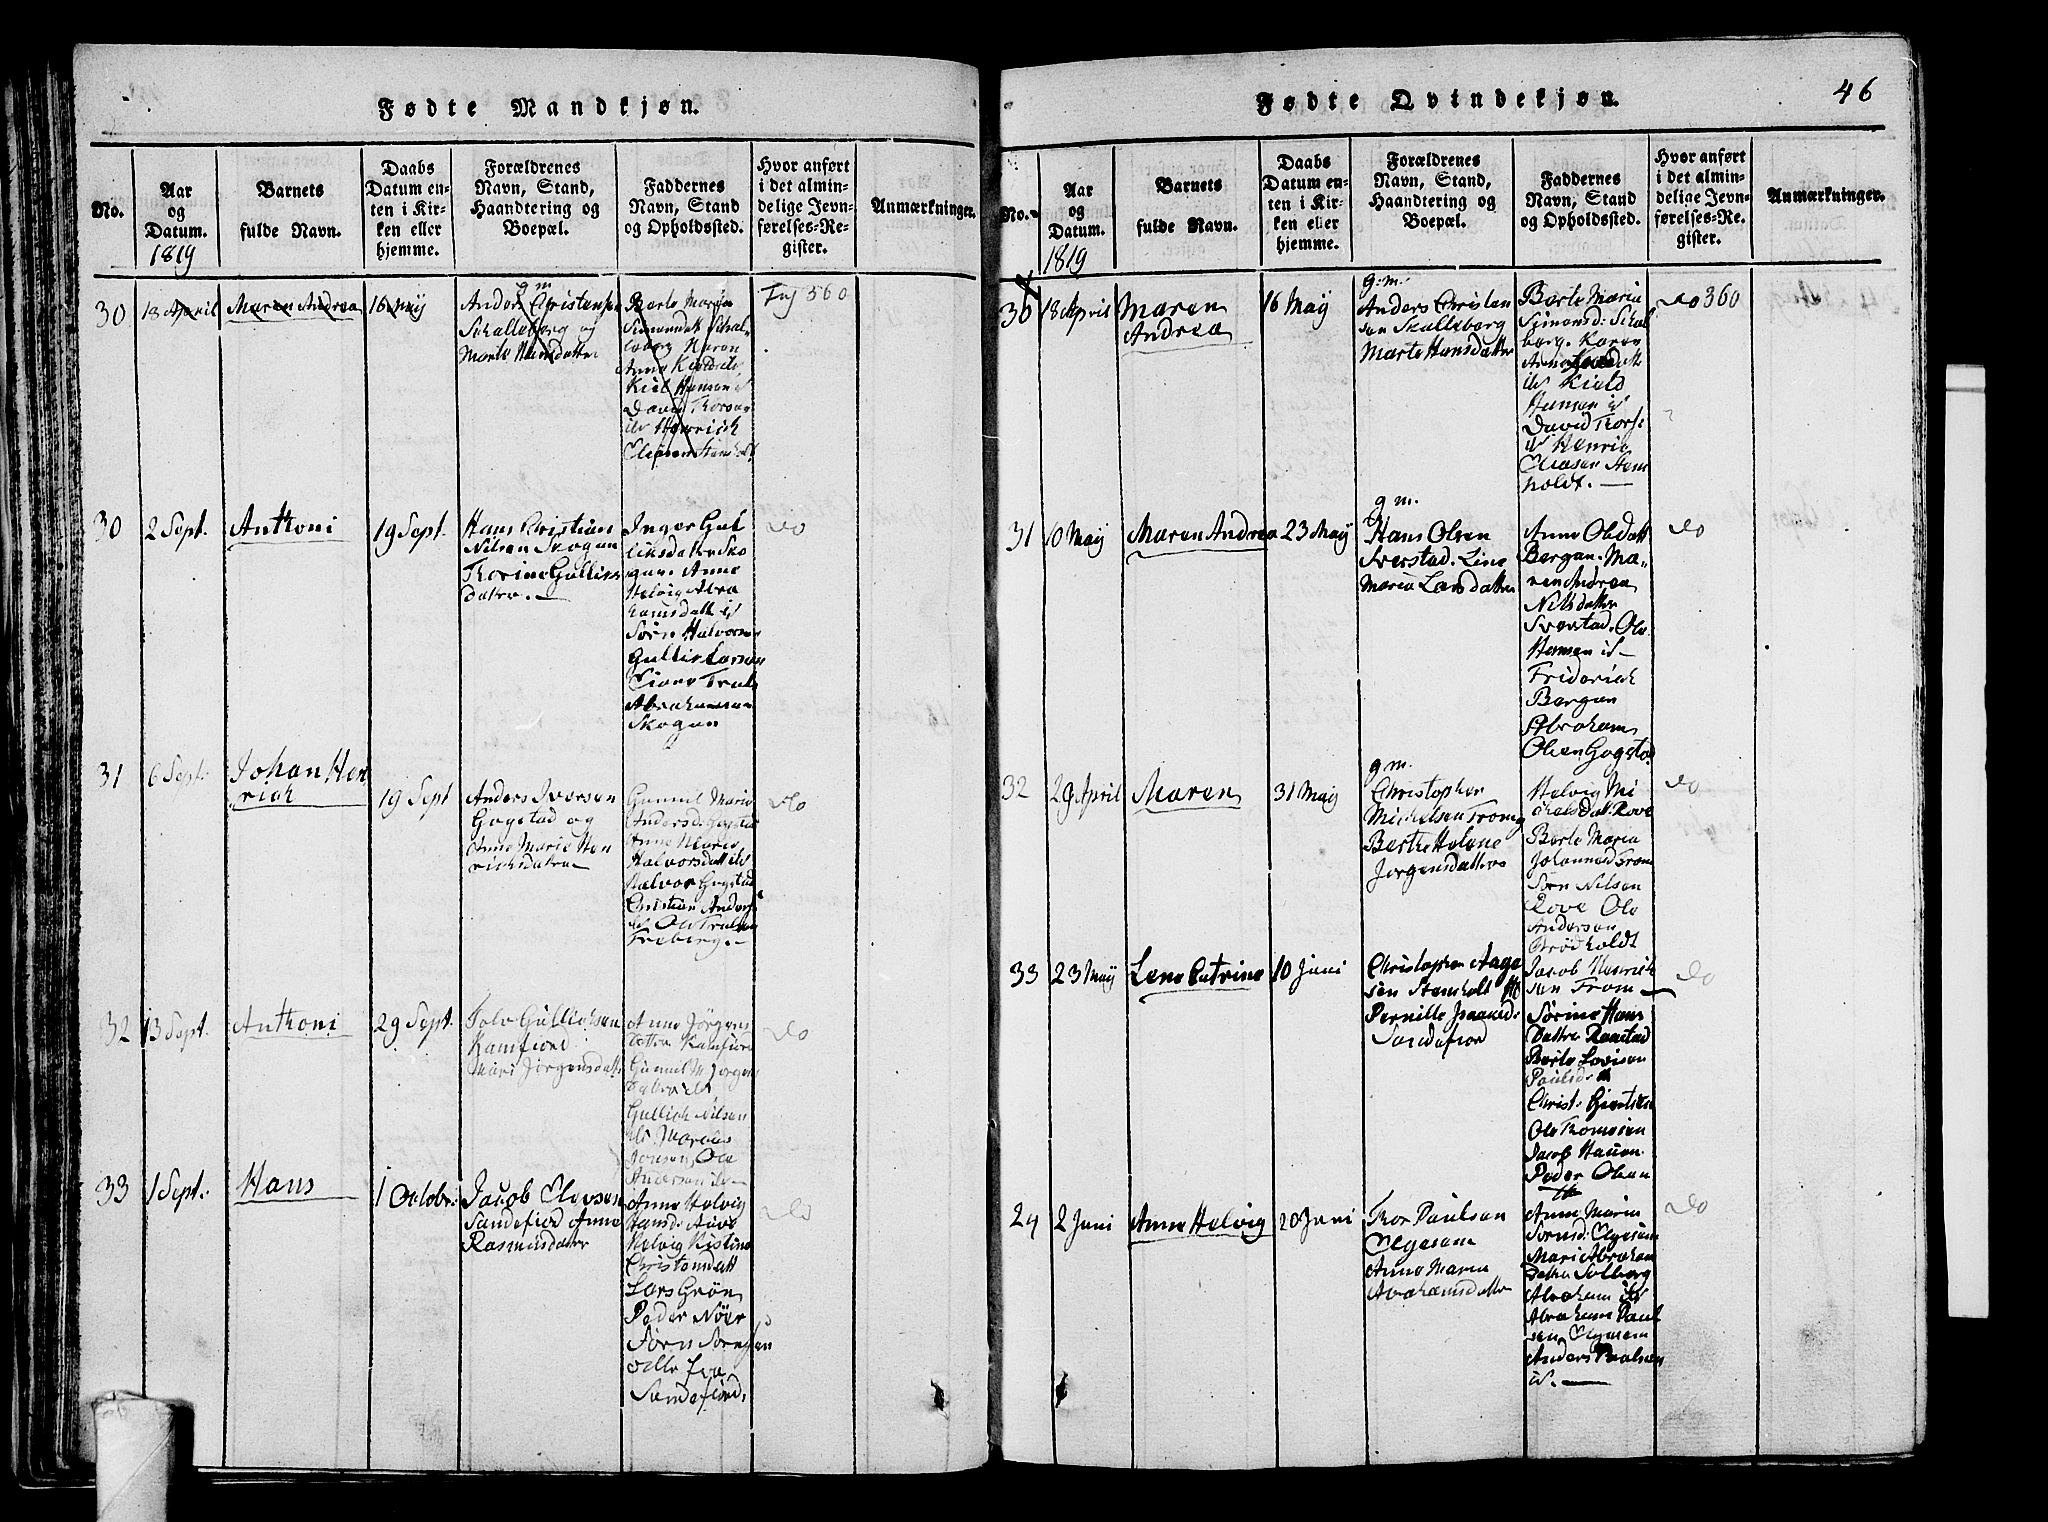 Fødte Mandkjøn.
No.
Aar
og
Datum.
1819
Barnets
fulde Navn.
Daabs
Datum en-
ten i Kir-
ken eller
hjemme.
Forældrenes
Navn, Stand,
Haandtering og
Boepæl.
Faddernes
Navn, Stand
og Opholdssted.
Hvor anført
i det almin-
delige Jevn-
førelses-Re-
gister.
Anmærkninger.
30
18 April
Maren Andrea
16 Maÿ
g m
Anders Christensen
Schalleberg og
Marte Hansdatter
Berte Maria
Simonsdt Schal
leberg Karen
Anne
Kield Hansen
David Thorsen
Henrich
Eliasen
360
30
2 Sept.
Anthoni
19 Sept.
Hans Christian
Nilsen Skogan
Thorine Gullics
datre.
Inger Gul
liksdatre Sko
gan. Anne
Helvig Abra
hamsdatt
Sörn Halvorsen
Gullic Larsen
Truls
Abrahamsen
Skogan
do
31
6 Sept.
Johan Hen
rich
19 Sept
Anders Iversen
Gogstad og
Anne Marie Hen
richsdatre
Gunnil Maria
Andersd: Gogstad
Anne Maria
Halvorsdatt
Halvor Gogstad
Christian Anders
Ole Trulsen
Freberg.
do
32
13 Sept.
Anthoni
29 Sept.
Tolv Gullichsen
Kamfiord
Mari Jörgensdatt
Anne Jörgens
Dattre Kamfiord
Gunnil M Jörgens
Gullich Nilsen
Jonsen, Ole
Andersen
do
33
1 Sept.
Hans
1 Octobr:
Jacob Elevsen
Sandefiord Anne
Rasmusdatter
Anne Helvig
Hansd:
Helvig Kistine
Christensdatt
Lars Grön
Peder Nöer
Sörn
alle fra
Sandefiord.
do
Fødte Qvindekjøn.
46
No.
Aar
og
Datum.
1819
Barnets
fulde Navn.
Daabs
Datum en-
ten i Kir-
ken eller
hjemme.
Forældrenes
Navn, Stand,
Haandtering og
Boepæl.
Faddernes
Navn, Stand
og Opholdssted.
Hvor anført
i det almin-
delige Jevn-
førelses-Re-
gister.
Anmærkninger.
30
18 April
Maren
Andrea
16 Maÿ
g. m.
Anders Christen
sen Skalleberg
Marte Hansdatter
Berte Maria
Simonsd: Schal
berg. Karen
Anne
Kield
Hansen
David Thors:
Henric
Eliasen Stem
holdt.
do 360
31
10 Maÿ
Maren Andrea
23 Maÿ
g m.
Hans Olsen
Sverstad. Line
Maria Larsdatter
Anne Olsdatt
Bergan. Ma-
ren Andrea
Nilsdatter
Sverstad. Ole
Hansen
Friderich
Bergan
Abraham
Olsen Gogstad
do
32
29 April
Maren
31 Maÿ
g m.
Christopher
Michelsen From
Berthe Helene
Jörgensdatter
Helvig Mi
chelsdatt. Rove
Berte Maria
Johannesd From
Sörn Nilsen
Rove Ole
Andersen
Grödholdt
do
33
23 Maÿ
Lene Catrine
10 Juni
Christopher Aage
sen Stemholt
Pernille Isaacsd:
Sandefiord
Jacob Henrich
sen From
Sörine Hans
Dattre Raastad
Berte Lovisen
Paulsd:
Christ: Giertsen
Ole Thomesen
Jacob Hansen
Peder Olsen
do
24
2 Juni
Anne Helvig
20 Juni
Thor Paulsen
Elgesem
Anne Maria
Abrahamsdatter
Anne Maria
Sörnsd: Elgesem
Mari Abraham
Datter Solberg
Abraham
Abraham Paul
sen Elgesem
Anders Paulsen
do